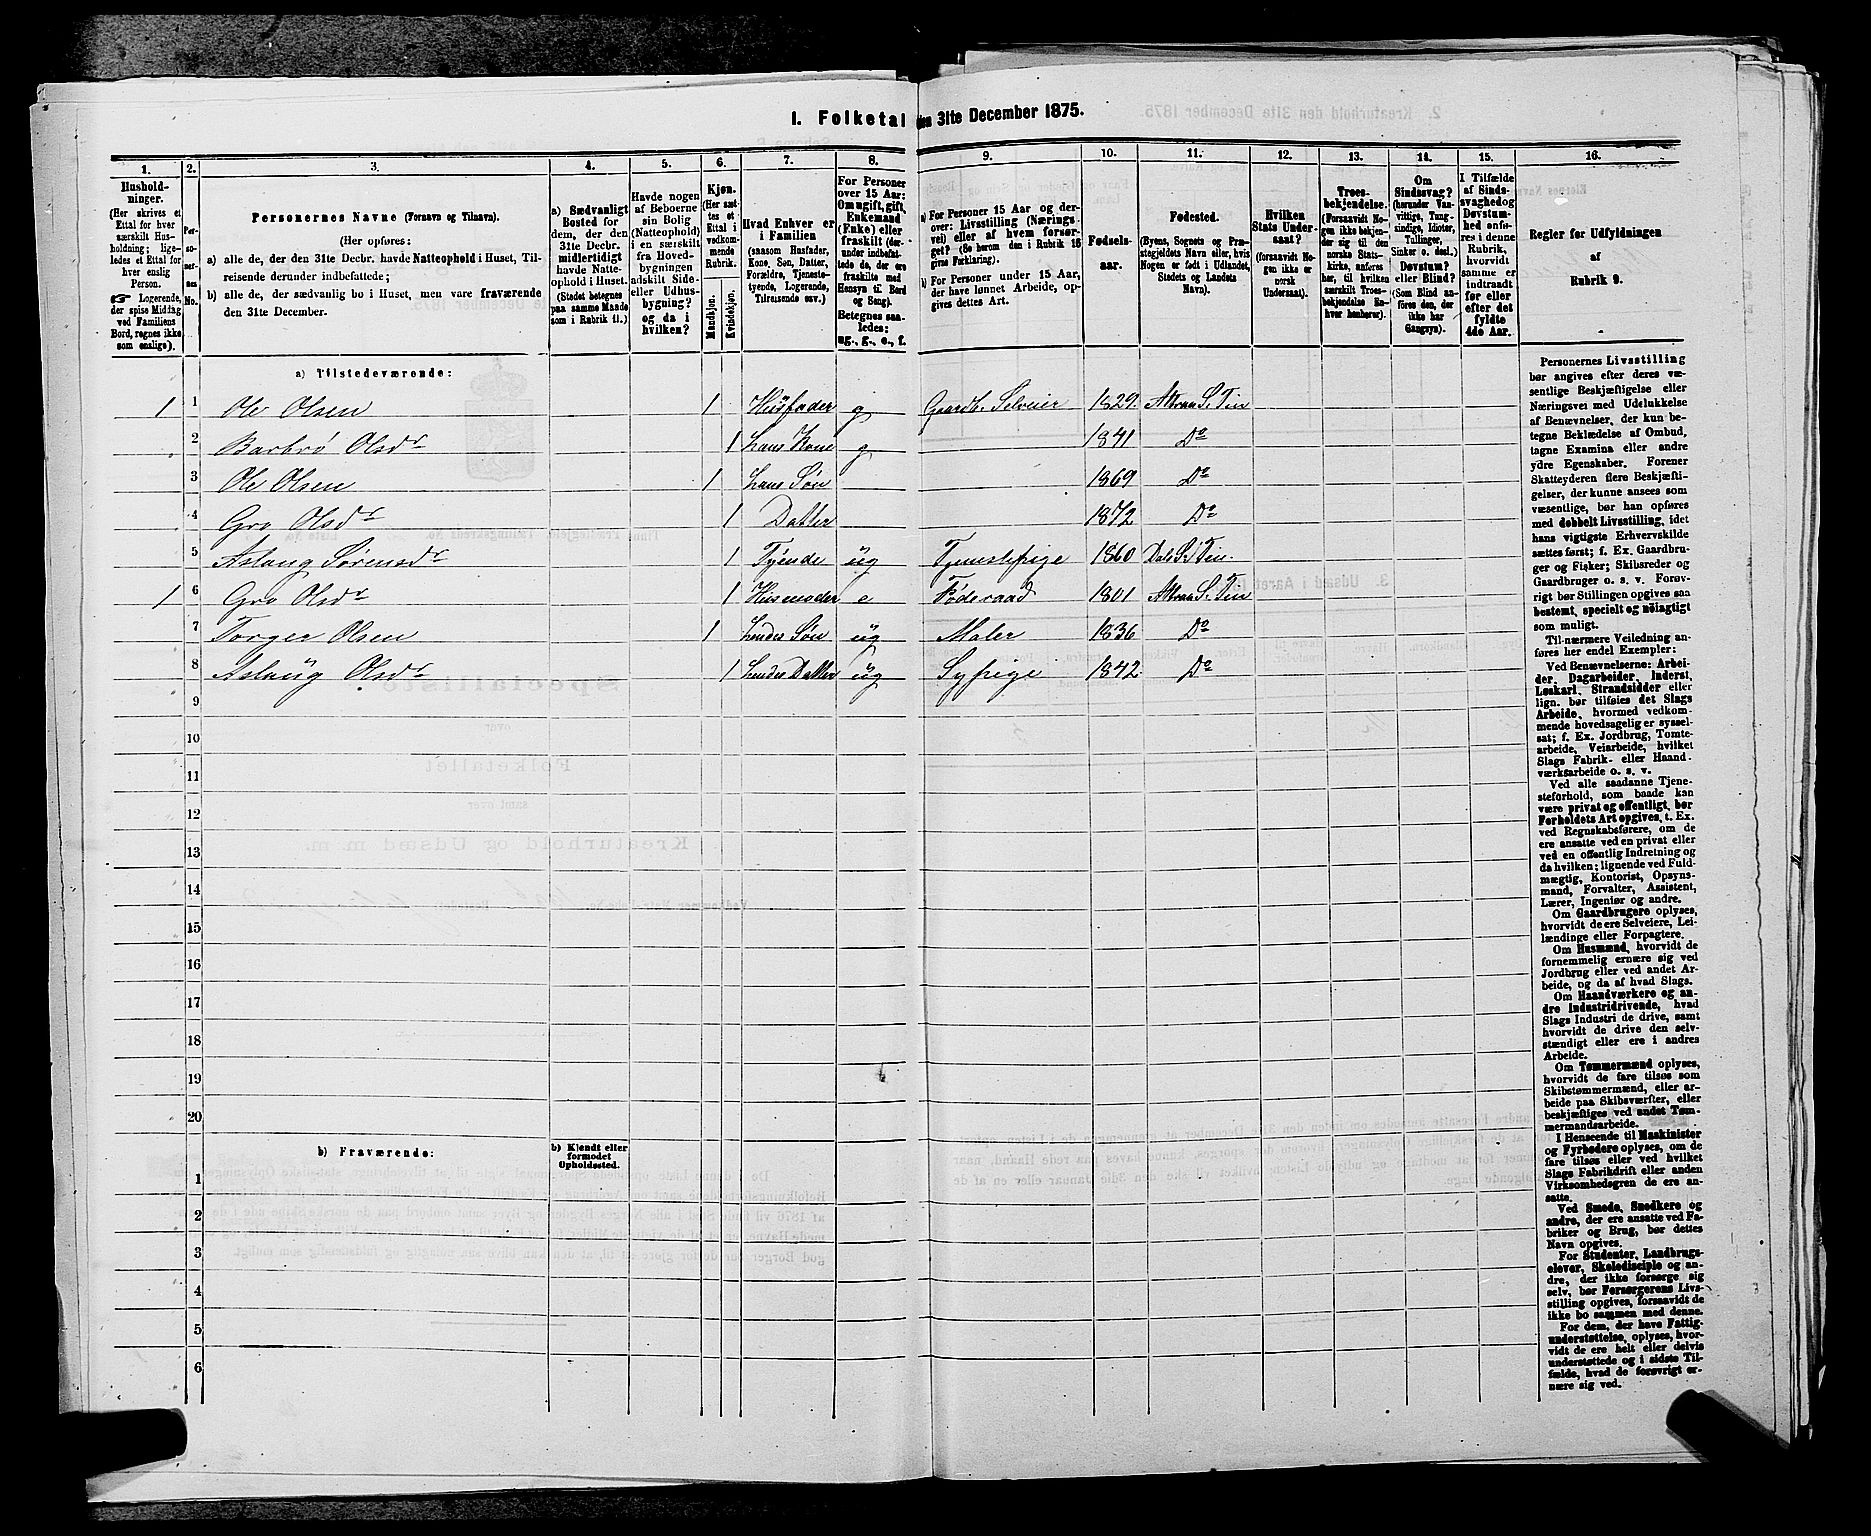 1. Folketal den 31te December 1875.
1. 2. 3. 4. 5. 6. 7. 8. 9. 10. 11. 12. 13. 14. 15. 16.
Hushold-
ninger.
(Her skrives et
Ettal for hver
særskilt Hus-
holdning; lige-
ledes et Ettal for
hver enslig
Person.
☞ Logerende,
der spise Middag
ved Familiens
Bord, regnes ikke
som enslige).
Per-
so-
ner-
nes
No.
Personernes Navne (Fornavn og Tilnavn).
(Her opføres:
a) alle de, der den 31te Decbr. havde Natteophold i Huset, Til-
reisende derunder indbefattede;
b) alle de, der sædvanlig bo i Huset, men vare fraværende
den 31te December.
a) Sædvanligt
Bosted for
dem, der den
31te Decbr.
midlertidigt
havde Natte-
ophold i Huset.
(Stedet betegnes
paa samme Maade
som i Rubrik 11.)
Havde nogen
af Beboerne
sin Bolig
(Natteophold)
i en særskilt
fra Hoved-
bygningen
adskilt Side-
eller Udhus-
bygning?
og da i
hvilken?
Kjøn.
(Her sæt-
tes et
Ettal i
vedkom-
mende
Rubrik.
Mandkjøn.
Kvindekjøn.
Hvad Enhver er
i Familien
(saasom Husfader,
Kone, Søn, Datter,
Forældre, Tjeneste-
tyende, Logerende,
Tilreisende osv.)
For Personer
over 15 Aar:
Om ugift, gift,
Enkemand
(Enke) eller
fraskilt (der-
under indbefat-
tede de, der ere
fraskilte med
Hensyn til Bord
og Seng).
Betegnes saa-
ledes:
ug., g., e., f.
a) For Personer 15 Aar og der-
over: Livsstilling (Nærings-
vei) eller af hvem forsør-
get? (Se herom den i Rubrik 16
givne Forklaring).
b) For Personer under 15 Aar,
der have lønnet Arbeide, op-
gives dettes Art.
Fødsels-
aar.
Fødested.
(Byens, Sognets og Præ-
stegjeldets Navn eller, hvis
Nogen er født i Udlandet,
Stedets og Landets
Navn).
Hvilken
Stats Under-
saat?
(forsaavidt No-
gen ikke er
norsk
Undersaat).
Troes-
bekjendelse.
(Forsaavidt No-
gen ikke bekjen-
der sig til den
norske Stats-
kirke, anføres
her, til hvilken
særskilt Troes-
bekjendelse En-
hver henhører).
Om
Sindssvag?
(herunder Van-
vittige, Tung-
sindige, Idioter,
Tullinger,
Sinker o. desl.)
Døvstum?
eller Blind?
(Som Blind an-
føres den, der
ikke har
Gangsyn).
I Tilfælde
af Sinds-
svaghed og
Døvstum-
hed anfø-
res i denne
Rubrik,
hvorvidt
samme er
indtraadt
før eller
efter det
fyldte
4de Aar.
Regler for Udfyldningen
af
Rubrik 9.
a) Tilstedeværende:
1 1 Ole Olsen 1 Husfader g Gaardb. Selveier 1829. Attraa S. Tin
2 Barbrø Olsdr 1 hans Kone g 1841 Do
3 Ole Olsen 1 hans Søn 1869 Do
4 Gro Olsdr 1 Datter 1872 Do
5 Aslaug Sørensdr 1 Tyende ug Tjenestepige 1860 Dals S. Tin.
1 6 Gro Olsdr 1 Husmoder e Føderaad 1801 Attraa S. Tin
7 Torger Olsen 1 hendes Søn ug Maler 1836 Do
8 Aslaug Olsdr 1 hendes Datter ug Sypige 1842 Do
9
10
11
12
13
14
15
16
17
18
19
20
b) Fraværende:
b) Kjendt eller
formodet
Opholdssted.
1
2
3
4
5
6
Personernes Livsstilling
bør angives efter deres væ-
sentlige Beskjæftigelse eller
Næringsvei med Udelukkelse
af Benævnelser, der kun be-
tegne Beklædelse af Ombud,
tagne Examina eller andre
ydre Egenskaber. Forener
Skatteyderen flere Beskjæfti-
gelser, der kunne ansees som
væsentlige, bør han opføres
med dobbelt Livsstilling, idet
hans vigtigste Erhvervskilde
sættes først; f. Ex. Gaardbru-
ger og Fisker; Skibsreder og
Gaardbruger o. s. v. Forøv-
rigt bør Stillingen opgives saa
bestemt, specielt og nöiagtigt
som muligt.
Til nærmere Veiledning an-
føres her endel Exempler:
Ved Benævnelserne: Arbei-
der, Dagarbeider, Inderst,
Løskarl, Strandsidder eller
lign. bør tilføies det Slags
Arbeide, hvormed vedkom-
mende hovedsagelig er syssel-
sat; f. Ex. Jordbrug, Tomte-
arbeide, Veiarbeide, hvilket
Slags Fabrik- eller Haand-
værksarbeide o. s. v.
Ved alle saadanne Tjene-
steforhold, som baade kan
være privat og offentligt, bør
Forholdets Art opgives, t. Ex.
ved Regnskabsførere, om de
ere ansatte ved en privat eller
ved en offentlig Indretning og
da hvilken; lignende ved Fuld-
mægtig, Kontorist, Opsyns-
mand, Forvalter, Assistent,
Lærer, Ingeniør og andre.
Om Gaardbrugere oplyses,
hvorvidt de ere Selveiere, Lei-
lændinge eller Forpagtere.
Om Husmænd, hvorvidt de
fornemmelig ernære sig ved
Jordbrug eller ved andet Ar-
beide, og da af hvad Slags.
Om Haandværkere og an-
dre Industridrivende, hvad
Slags Industri de drive, samt
hvorvidt de drive den selv-
stændigt eller ere i andres
Arbeide.
Om Tømmermænd oplyses,
hvorvidt de fare tilsøs som
Skibstømmermænd, eller ar-
beide paa Skibsværfter, eller
beskjæftiges ved andet Tøm-
mermandsarbeide.
I Henseende til Maskinister
og Fyrbødere oplyses, om de
fare tilsøs eller ved hvilket
Slags Fabrikdrift eller anden
Virksomhedsgren de ere an-
satte.
Ved Smede, Snedkere og
andre, der ere ansatte ved Fa-
briker og Brug, bør dettes
Navn opgives.
For Studenter, Landbrugs-
elever, Skoledisciple og an-
dre, der ikke forsørge sig
selv, bør Forsørgerens Livs-
stilling opgives, forsaavidt de
ikke bo sammen med denne.
For dem, der have Fattig-
understøttelse, oplyses, hvor-
vidt de ere helt eller delvis
understøttede og i sidste Til-
fælde, hvad de forøvrigt er-
nære sig ved.